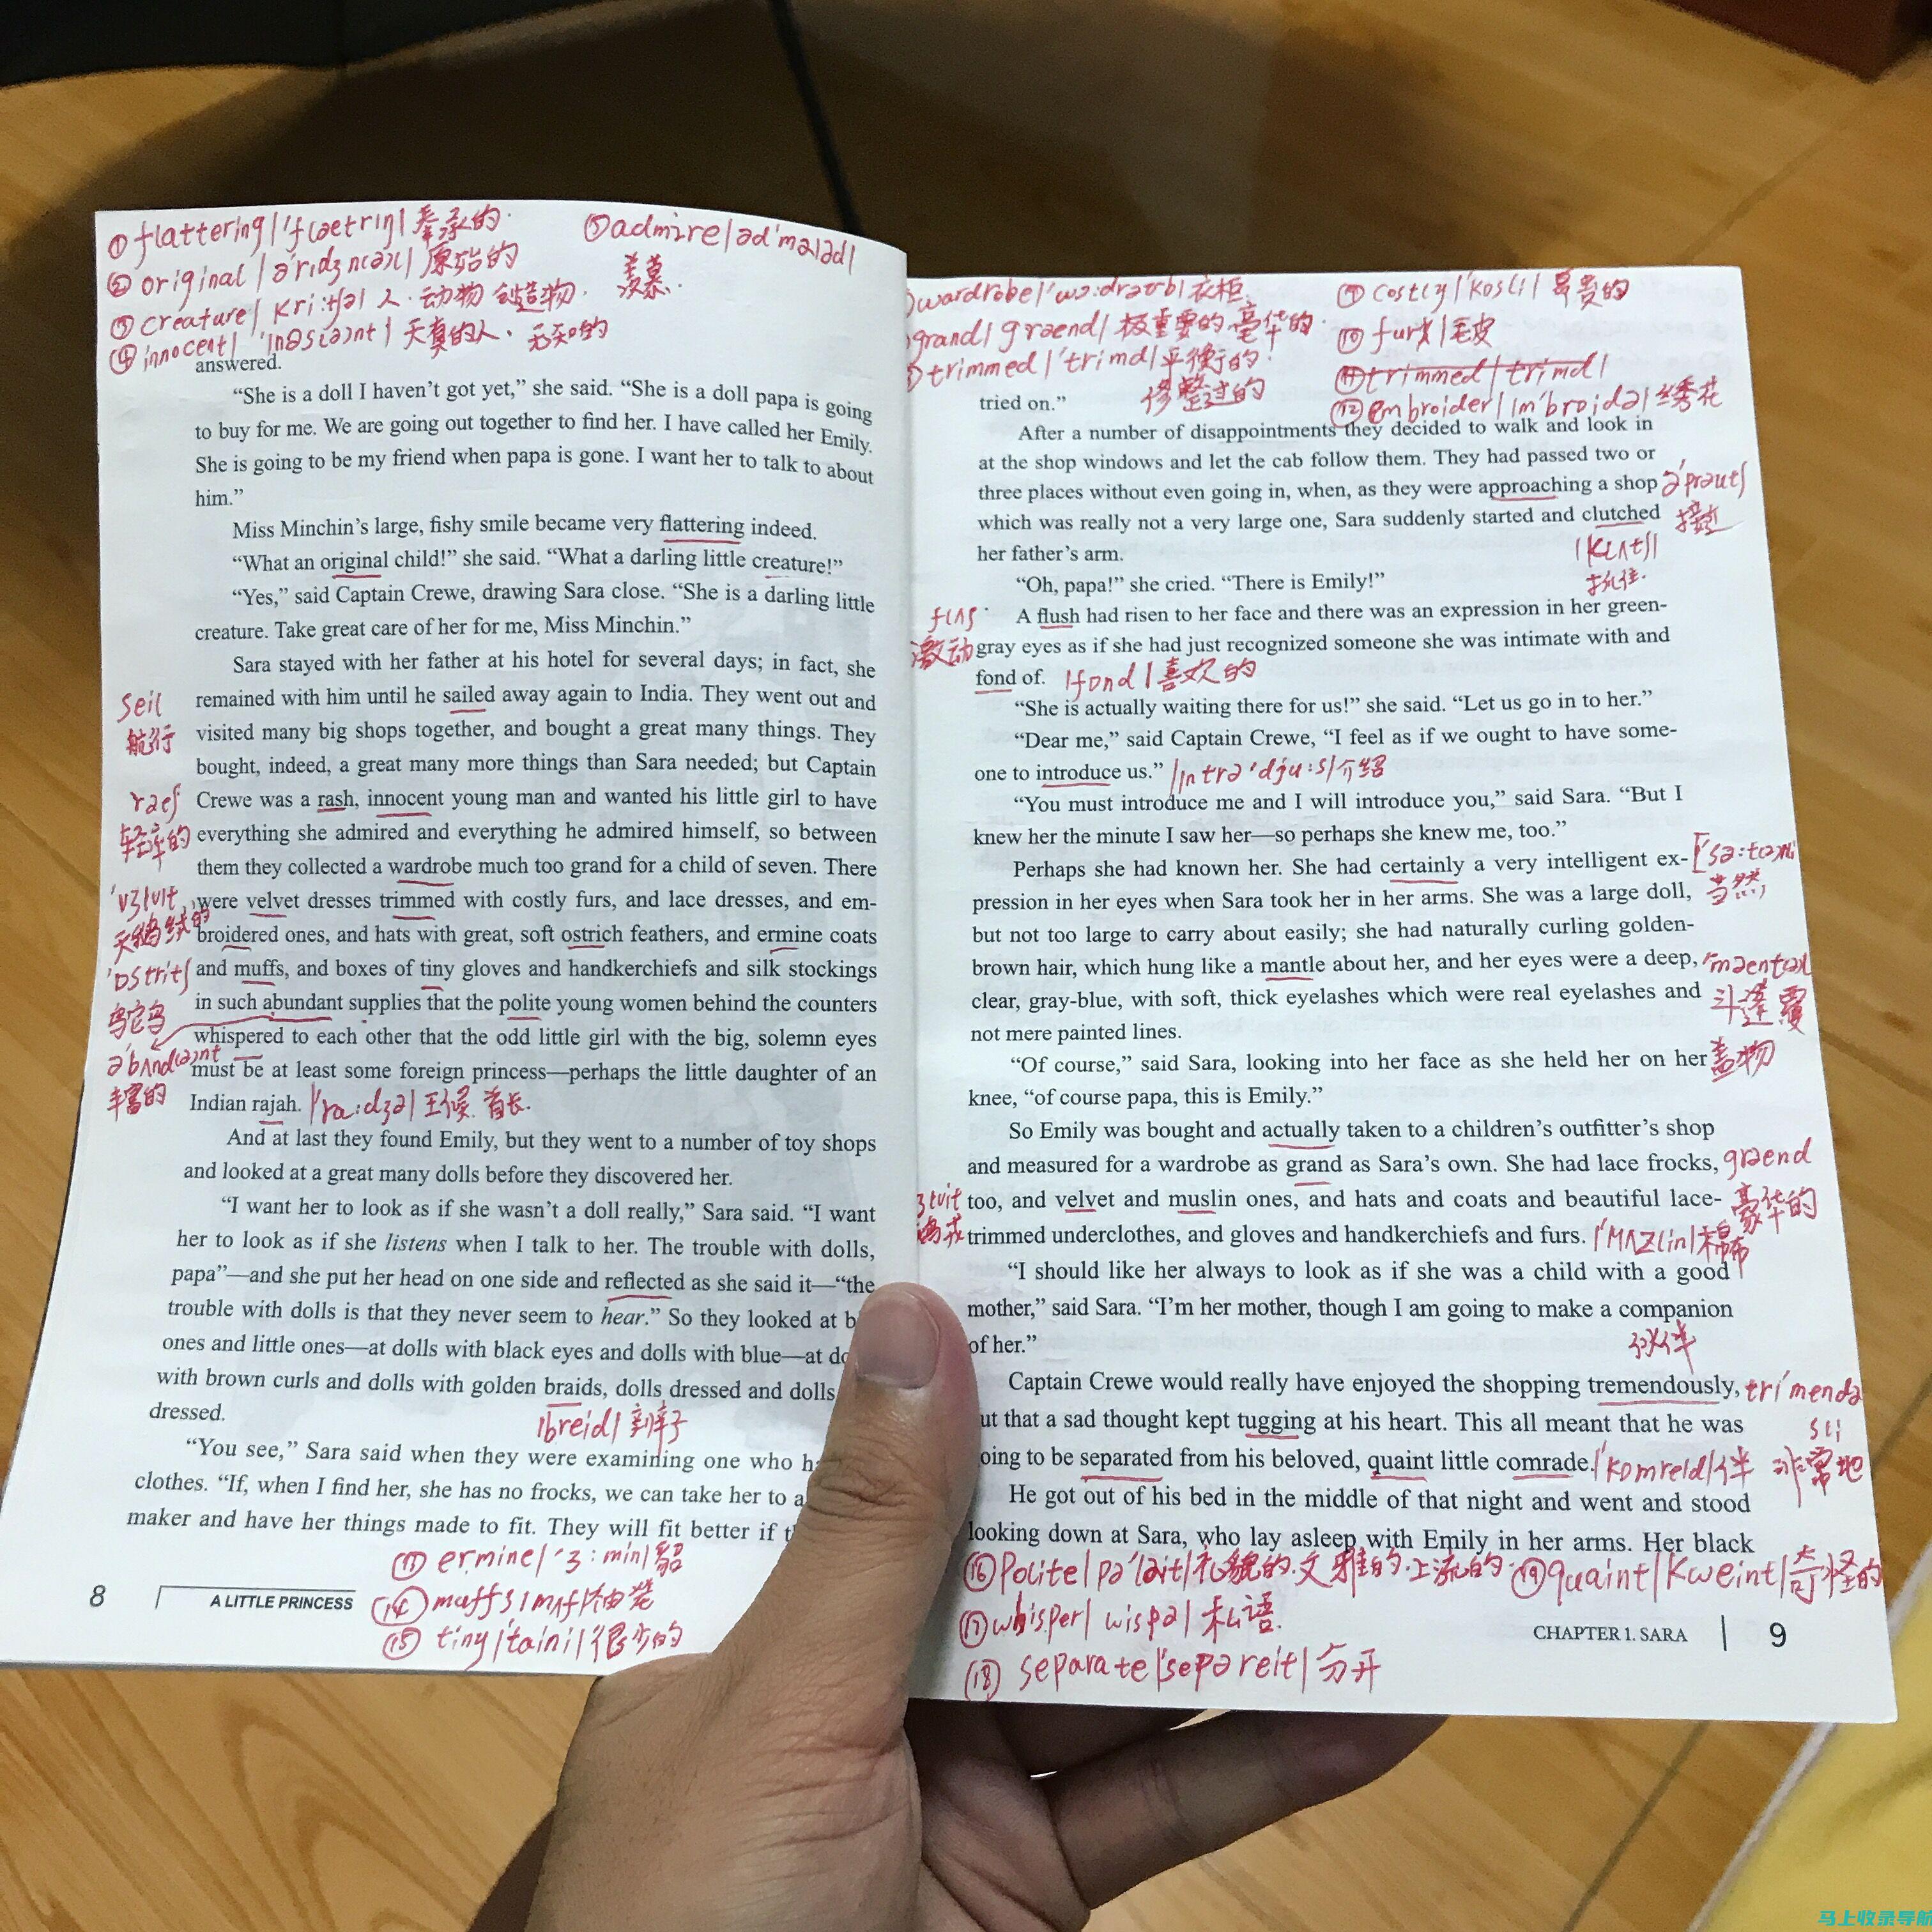 ①flattering|'flætrɪŋ|奉承的
⑤admire|əd'maɪəd|
羡慕
②original|ə'rɪdʒn(ə)l|原始的
③creature|kri:tʃə|人.动物 创造物.
④innocent|'ɪnəs(ə)nt|天真的人.无知的
answered.
“She is a doll I haven’t got yet,” she said. “She is a doll papa is going
to buy for me. We are going out together to find her. I have called her Emily.
She is going to be my friend when papa is gone. I want her to talk to about
him.”
Miss Minchin’s large, fishy smile became very flattering indeed.
“What an original child!” she said. “What a darling little creature!”
“Yes,” said Captain Crewe, drawing Sara close. “She is a darling little
creature. Take great care of her for me, Miss Minchin.”
Sara stayed with her father at his hotel for several days; in fact, she
remained with him until he sailed away again to India. They went out and
visited many big shops together, and bought a great many things. They
bought, indeed, a great many more things than Sara needed; but Captain
Crewe was a rash, innocent young man and wanted his little girl to have
everything she admired and everything he admired himself, so between
them they collected a wardrobe much too grand for a child of seven. There
were velvet dresses trimmed with costly furs, and lace dresses, and em-
broidered ones, and hats with great, soft ostrich feathers, and ermine coats
and muffs, and boxes of tiny gloves and handkerchiefs and silk stockings
in such abundant supplies that the polite young women behind the counters
whispered to each other that the odd little girl with the big, solemn eyes
must be at least some foreign princess—perhaps the little daughter of an
Indian rajah. |'ra:dʒə|王侯.首长.
And at last they found Emily, but they went to a number of toy shops
and looked at a great many dolls before they discovered her.
“I want her to look as if she wasn’t a doll really,” Sara said. “I want
her to look as if she listens when I talk to her. The trouble with dolls,
papa”—and she put her head on one side and reflected as she said it—“the
trouble with dolls is that they never seem to hear.” So they looked at b
ones and little ones—at dolls with black eyes and dolls with blue—at do
with brown curls and dolls with golden braids, dolls dressed and dolls
dressed.
|breid|辫子
“You see,” Sara said when they were examining one who h
clothes. “If, when I find her, she has no frocks, we can take her to a
maker and have her things made to fit. They will fit better if t
seil
航行
ræʃ
轻率的
'vɜlvit
天鹅绒的
'ɒstritʃ
鸵鸟
ə'bʌnd(ə)nt
丰富的
⑬ ermine|'ɜ:min|貂
⑭muffs|mʌf|袖笼
⑮ tiny|'taini|很少的
8
A LITTLE PRINCESS
wardrobe|'wɔ:drəʊb|衣柜
grand|grænd|极重要的.豪华的
trimmed|'trimd|平衡的
修整过的
⑨costly|'kosli|昂贵的
⑩fur|毛皮
⑪trimmed|trimd|
⑫embroider|ɪm'broidə|绣花
tried on.”
After a number of disappointments they decided to walk and look in
at the shop windows and let the cab follow them. They had passed two or
three places without even going in, when, as they were approaching a shop
which was really not a very large one, Sara suddenly started and clutched
her father’s arm.
“Oh, papa!” she cried. “There is Emily!”
A flush had risen to her face and there was an expression in her green-
gray eyes as if she had just recognized someone she was intimate with and
fond of. |fond|喜欢的
“She is actually waiting there for us!” she said. “Let us go in to her.”
“Dear me,” said Captain Crewe, “I feel as if we ought to have some-
one to introduce us.” |ɪntrə'dju:s|介绍
“You must introduce me and I will introduce you,” said Sara. “But I
knew her the minute I saw her—so perhaps she knew me, too.”
Perhaps she had known her. She had certainly a very intelligent ex-
pression in her eyes when Sara took her in her arms. She was a large doll,
but not too large to carry about easily; she had naturally curling golden-
brown hair, which hung like a mantle about her, and her eyes were a deep,
clear, gray-blue, with soft, thick eyelashes which were real eyelashes and
not mere painted lines.
“Of course,” said Sara, looking into her face as she held her on her
knee, “of course papa, this is Emily.”
So Emily was bought and actually taken to a children’s outfitter’s shop
and measured for a wardrobe as grand as Sara’s own. She had lace frocks,
too, and velvet and muslin ones, and hats and coats and beautiful lace-
trimmed underclothes, and gloves and handkerchiefs and furs. |'mʌzlin|棉布
“I should like her always to look as if she was a child with a good
mother,” said Sara. “I’m her mother, though I am going to make a companion
of her.”
伙伴
Captain Crewe would really have enjoyed the shopping tremendously,
ut that a sad thought kept tugging at his heart. This all meant that he was
oing to be separated from his beloved, quaint little comrade. |'komreid|伴
He got out of his bed in the middle of that night and went and stood
looking down at Sara, who lay asleep with Emily in her arms. Her black
ə'prəutʃ
接近
|klʌtʃ|
抓住.
flʌʃ
激动
['sə:t(ə)nli
当然
'mæntəl
斗篷 覆
盖物
grænd
豪华的
tri'mendə
sli
非常地
⑯Polite|pə'lait|礼貌的.文雅的.上流的
⑲quaint|kweint|奇怪的
⑰whisper|wispə|私语.
⑱ separate|'sepəreit|分开
CHAPTER 1. SARA
9
马上收录导航